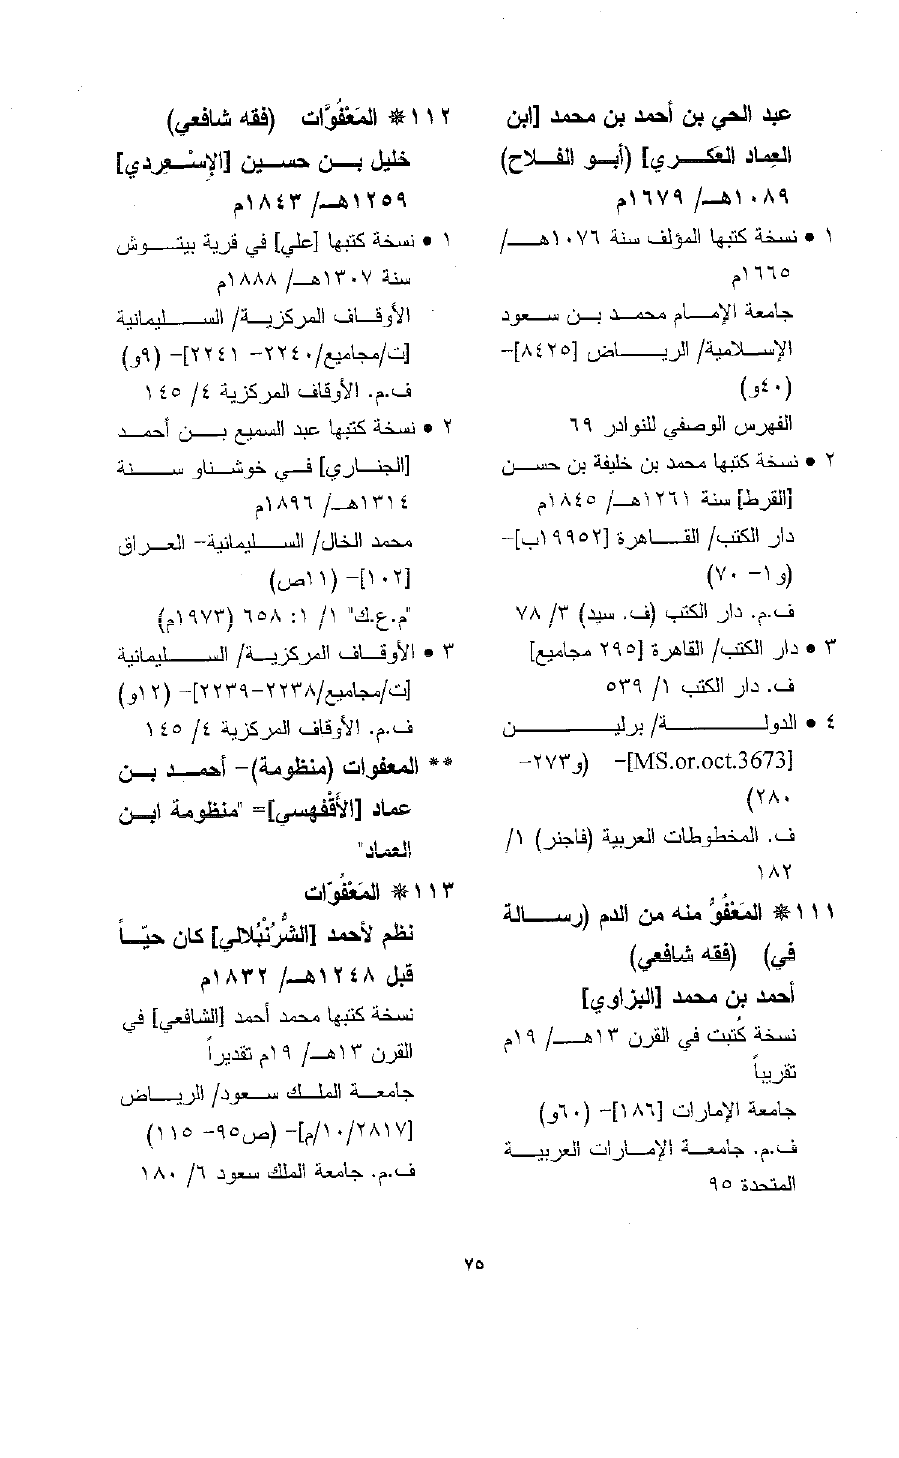 عبد الحي بن أحمد بن محمد [ابن
العِماد العَكَري] (أبو الفلاح)
١٠٨٩هـ/ ١٦٧٩م
١ • نسخة كتبها المؤلف سنة ١٠٧٦هـ/
١٦٦٥م
جامعة الإمام محمد بن سعود
الإسلامية/ الرياض [٨٤٢٥]-
(٤٠و)
الفهرس الوصفي للنوادر ٦٩
٢ • نسخة كتبها محمد بن خليفة بن حسن
[القرط] سنة ١٢٦١هـ/ ١٨٤٥م
دار الكتب/ القاهرة [١٩٩٥٢ب]-
(و١- ٧٠)
ف.م. دار الكتب (ف. سيد) ٣/ ٧٨
٣ • دار الكتب/ القاهرة [٢٩٥ مجاميع]
ف. دار الكتب ١/ ٥٣٩
٤ • الدولة/ برلين
[MS.or.oct.3673]- (و٢٧٣-
٢٨٠)
ف. المخطوطات العربية (فاجنر) ١/
١٨٢
١١١ * المَعْفُوُّ منه من الدم (رسالة
في) (فقه شافعي)
أحمد بن محمد [البزاوي]
نسخة كُتبت في القرن ١٣هـ/ ١٩م
تقريباً
جامعة الإمارات [١٨٦]- (٦٠و)
ف.م. جامعة الإمارات العربية
المتحدة ٩٥
١١٢ * المَعْفُوَّات (فقه شافعي)
خليل بن حسين [الإسْعِردي]
١٢٥٩هـ/ ١٨٤٣م
١ • نسخة كتبها [علي] في قرية بيتوش
سنة ١٣٠٧هـ/ ١٨٨٨م
الأوقاف المركزية/ السليمانية
[ت/مجاميع/٢٢٤٠- ٢٢٤١]- (٩و)
ف.م. الأوقاف المركزية ٤/ ١٤٥
٢ • نسخة كتبها عبد السميع بن أحمد
[الجناري] في خوشناو سنة
١٣١٤هـ/ ١٨٩٦م
محمد الخال/ السليمانية- العراق
[١٠٢]- (١١ص)
"م.ع.ك" ١/ ١: ٦٥٨ (١٩٧٣م)
٣ • الأوقاف المركزية/ السليمانية
[ت/مجاميع/٢٢٣٨-٢٢٣٩]- (١٢و)
ف.م. الأوقاف المركزية ٤/ ١٤٥
** المعفوات (منظومة)- أحمد بن
عماد [الأَقْفَهسي]= "منظومة ابن
العماد"
١١٣ * المَعْفُوّات
نظم لأحمد [الشُّرُنْبُلالي] كان حيّاً
قبل ١٢٤٨هـ/ ١٨٣٢م
نسخة كتبها محمد أحمد [الشافعي] في
القرن ١٣هـ/ ١٩م تقديراً
جامعة الملك سعود/ الرياض
[١٠/٢٨١٧/م]- (ص٩٥- ١١٥)
ف.م. جامعة الملك سعود ٦/ ١٨٠
٧٥